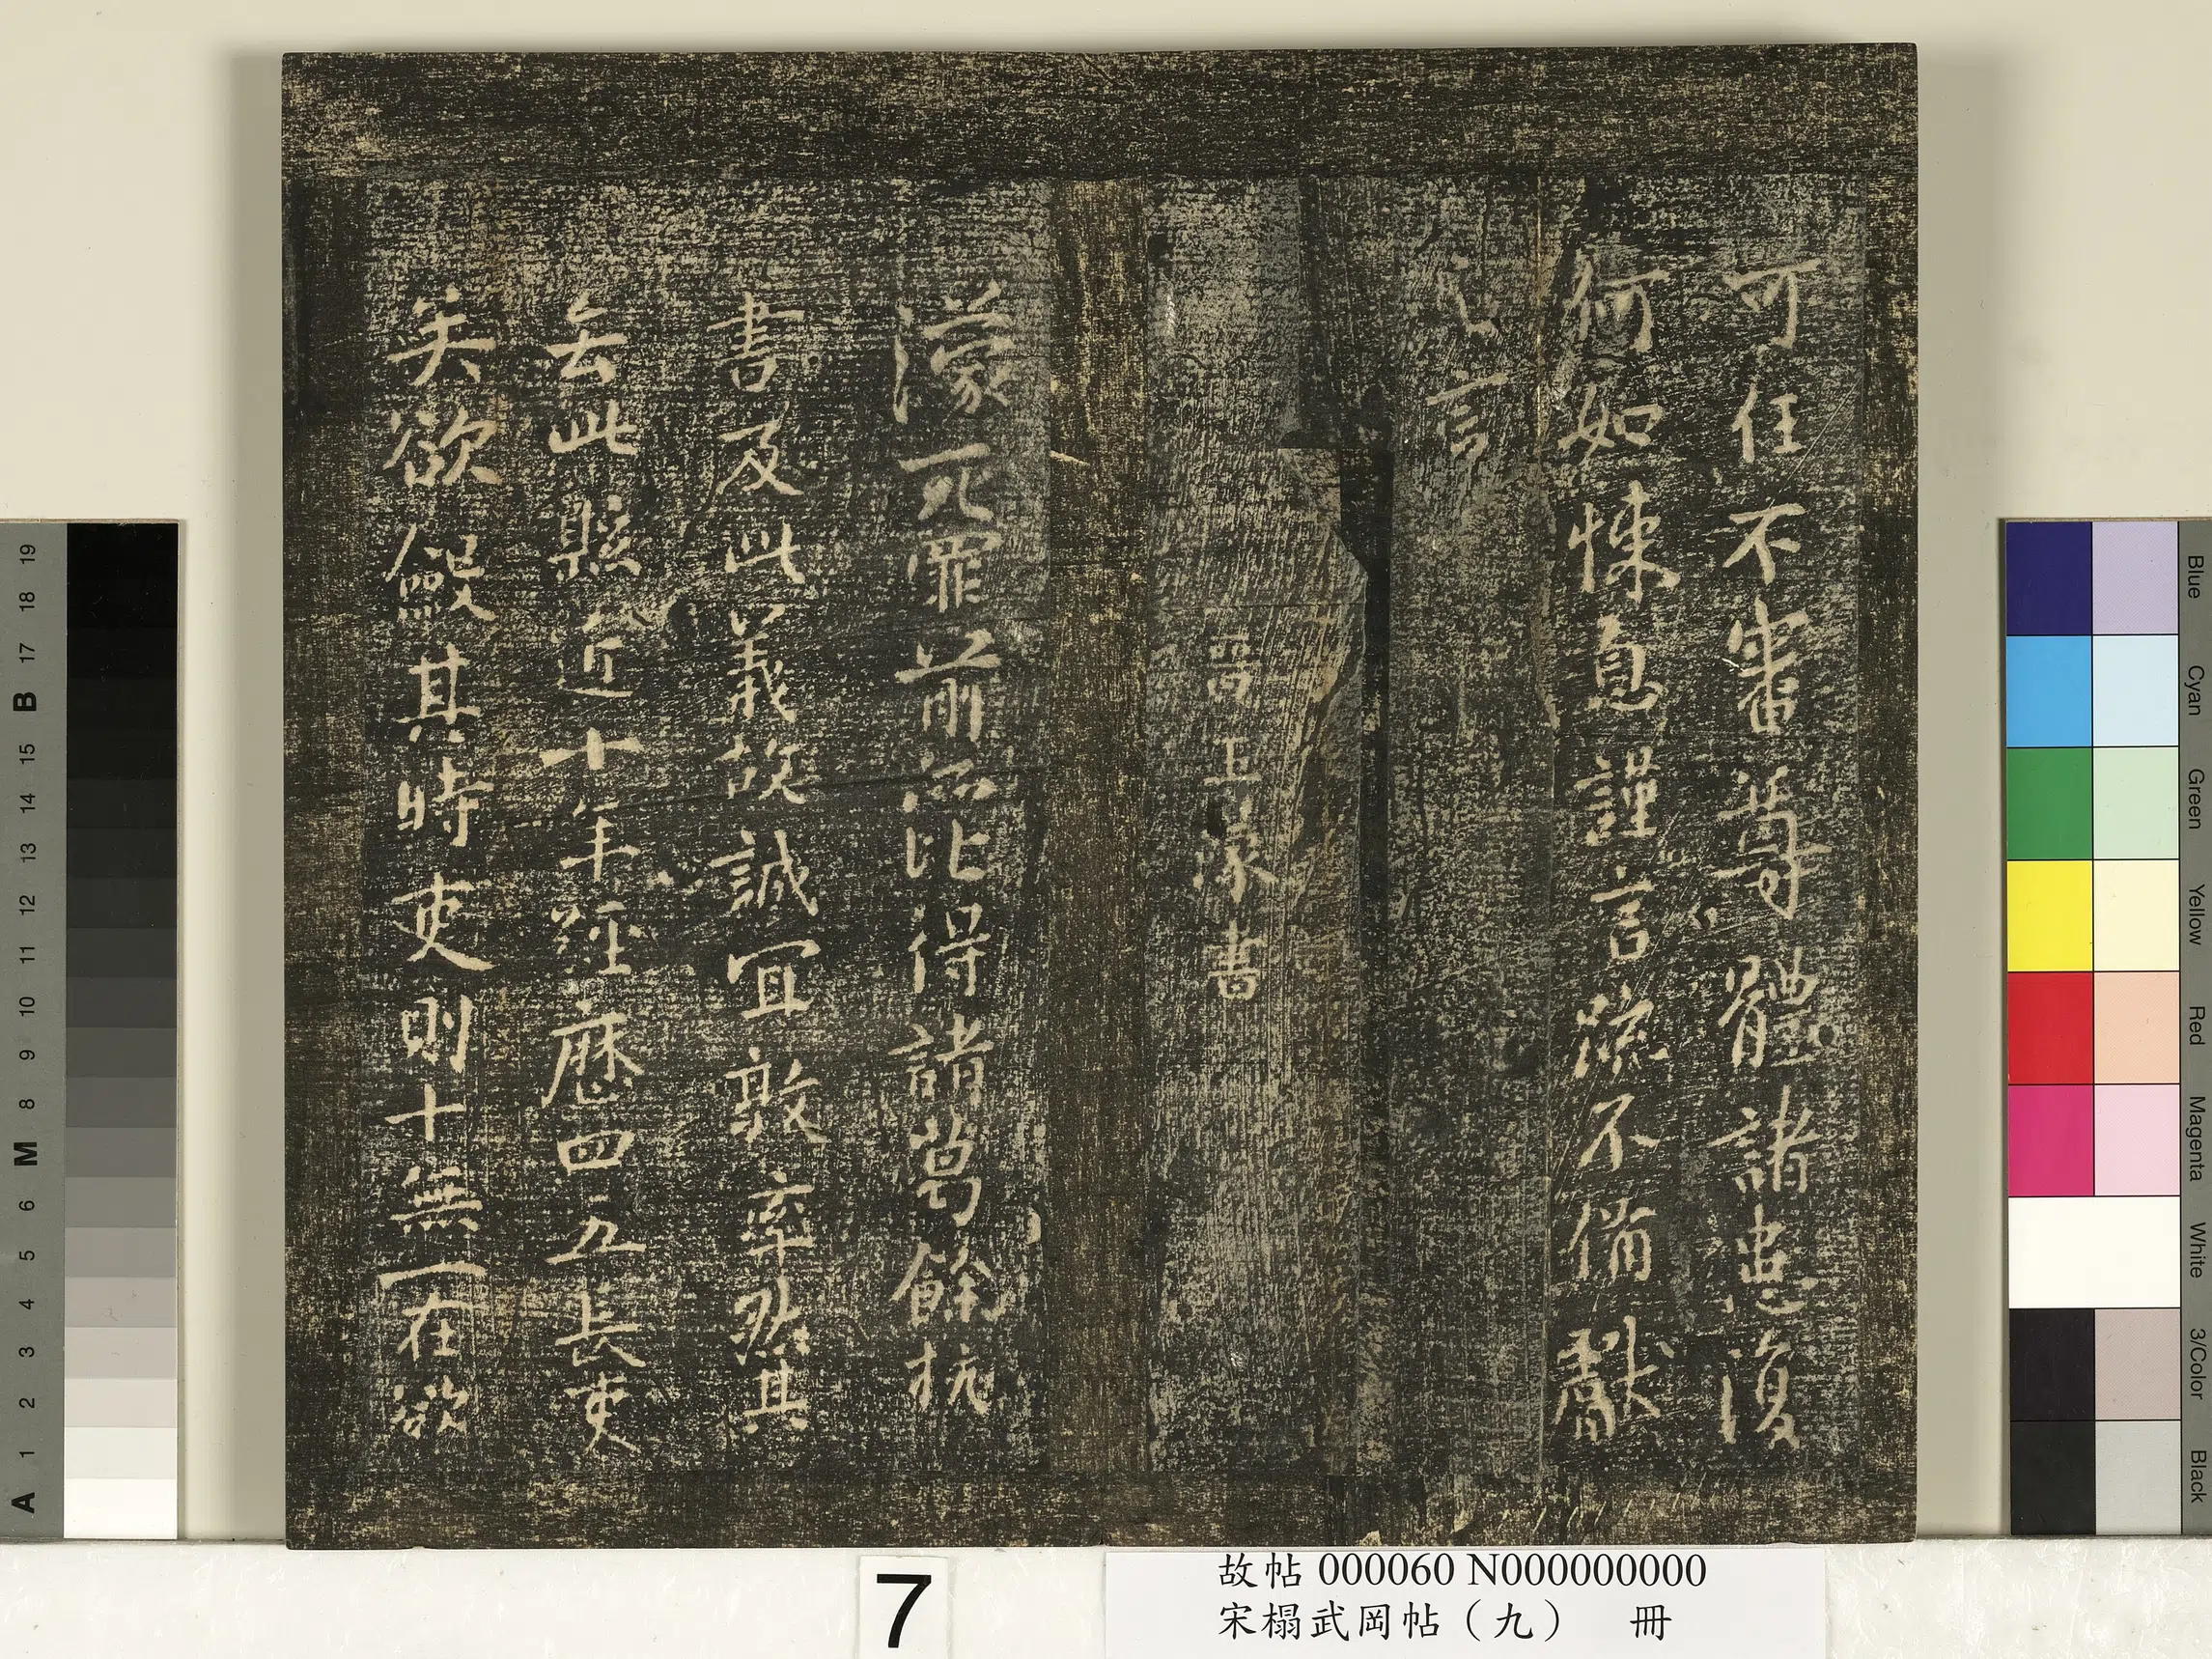 可任不審尊體諸患復
何如悚息謹言疏不備獻
之言
晉王濛書
濛死罪前所比得諸葛餘杭
書及此義故誠宜敦率然其
去此縣近十年經歷四五長吏
矣欲餒其時吏則十無一在欲
7
故帖 000060 N000000000
宋榻武岡帖（九） 冊
19
18
17
B
15
14
13
12
11
10
9
8
M
6
5
4
3
2
1
A
Blue
Cyan
Green
Yellow
Red
Magenta
White
3/Color
Black